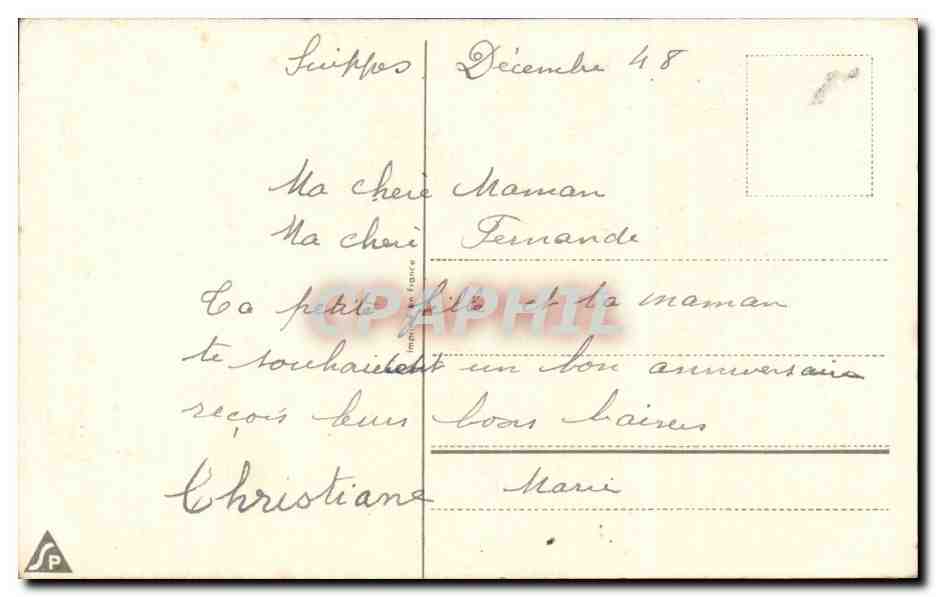 Suippes Décembre 48
Ma cherè Maman
Ma cheri Fernande
Ta petite fille et ta maman
te souhaitent un bon anniversaire
reçois leurs bons baisers
Christiane Marie
Imprimé en France
CPAPHIL
SP